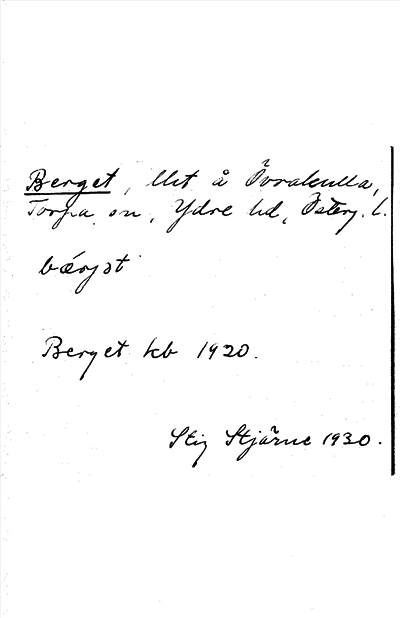 Berget, llht å Övrakulla,
Torpa sn, Ydre hd, Österg. l.
bærjət
Berget kb 1920.
Stig Stjärne 1930.